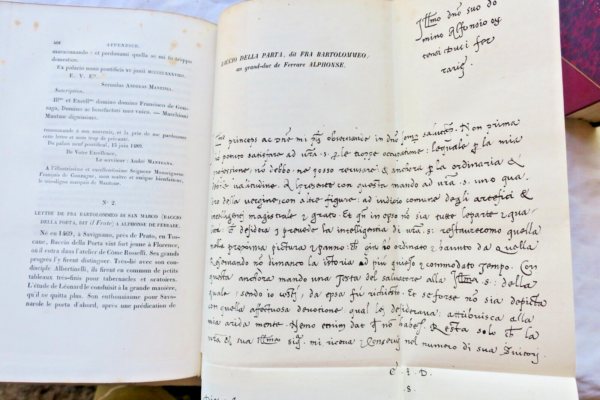 APPENDICE.
raccomando: et perdonami quella se mi fo troppo
domestico.
Ex palacio
E. V. Ex.
Servulus ANDREAS MANTINIA.
Inscription.
Illmo et Excellmo domino domino Francisco de Gon-
zaga, Domino ac benefactori unico Marchioni
Mantue dignissimo.
recommande à son souvenir, et la prie de me pardonner
cette lettre si mon trop de privauté.
Du palais neuf pontifical, 15 juin 1489.
De Votre Excellence,
Le serviteur : André MANTEGNA.
A l'illustrissime et excellentissime Seigneur Monseigneur
François de Gonzague, mon maître et unique bienfaiteur,
le très-digne marquis de Mantoue.
N° 2.
LETTRE DE FRA BARTOLOMMEO DI SAN MARCO (BACCIO
DELLA PORTA, DIT il Frate) A ALPHONSE DE FERRARE.
Né en 1469, à Savignano, près de Prato, en Tos-
cane, Baccio della Porta vint fort jeune à Florence,
où il entra dans l'atelier de Côme Rosselli. Ses grands
progrès l'y firent distinguer. Très-lié avec son con-
disciple Albertinelli, ils firent en commun de petits
tableaux très-finis pour tabernacles et oratoires.
L'étude de Léonard le conduisit à la grande manière,
qu'il ne quitta plus. Son enthousiasme pour Savo-
narole le porta d'abord, après une prédication de
BACCIO DELLA PORTA, dit FRA BARTOLOMMEO,
au grand-duc de Ferrare ALPHONSE.
Illmo dno suo do
mino Alfonso
Duci fer
rarie
princeps ac dne mi observantie in dno salutem. Non prima
possuto satisfare ad le troppe occupatione: lequale la mia
professione, no debbo ne posso recusare: & anchora la ordinaria &
valitudine. & con questa mando ad s. uno qua
dro della vergine con altre figure: ad iudicio comune degli artefici &
intelligenti magistrale & grato. Et in epso no sia tutte le parte &
desidera & precede la intelligentia di s. restaureremo quella
nella proxima pictura & panno: gia ho ordinato & havuto da quella
& quando no dimanco la istoria ad piu quieto & commodato tempo. Con
questa anchora mando una Testa del salvatore alla Illma s: dalla
quale: sendo io da epsa fui richiesto. Et se forse no sia depista
con quella affettuosa devotione qual lei desiderava: attribuisca alla
mia arida mente. Nemo etenim dat no habet. Resta solo la
s. & sua Illma mi riceva & conservi nel numero di sua Servitori.